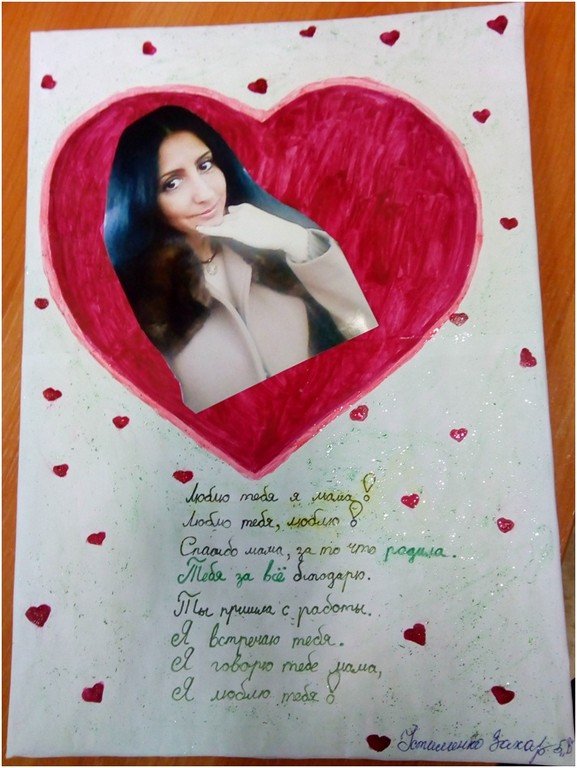 Люблю тебя я мама!
Люблю тебя, люблю!
Спасибо мама, за то что родила.
Тебя за всё благодарю.
Ты пришла с работы.
Я встречаю тебя.
Я говорю тебе мама,
Я люблю тебя!
Устименко Захар